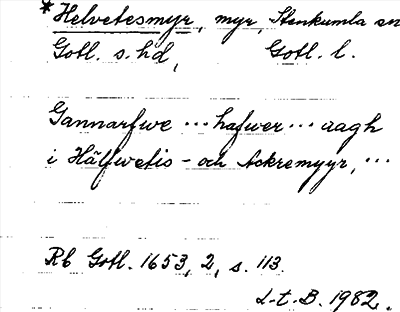 *Helvetesmyr, myr, Stenkumla sn
Gotl. s. hd, Gotl. l.
Gannarfwe ... hafwer ... aagh
i Hälfwetis- och Ackremyyr, ...
Rb Gotl. 1653, 2, s. 113.
L-t. B. 1982.